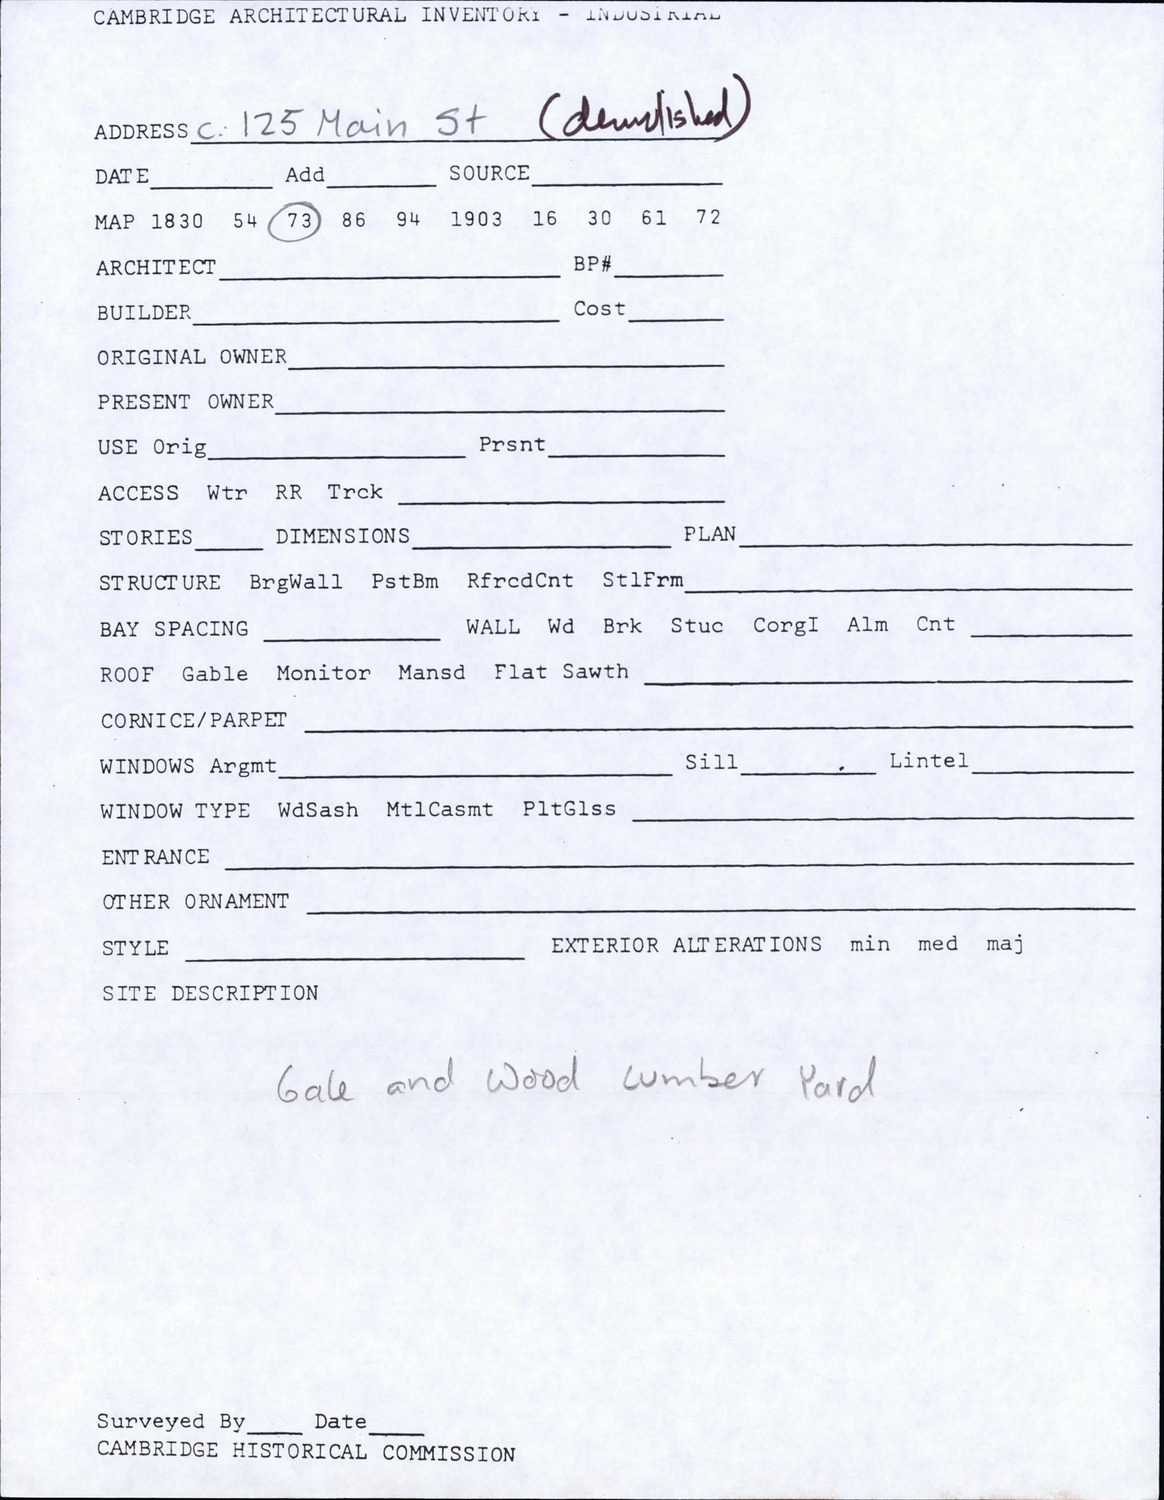 CAMBRIDGE ARCHITECTURAL INVENTORY - INDUSTRIAL
ADDRESS c. 125 Main St (demolished)
DATE Add SOURCE
MAP 1830 54 73 86 94 1903 16 30 61 72
ARCHITECT BP#
BUILDER Cost
ORIGINAL OWNER
PRESENT OWNER
USE Orig Prsnt
ACCESS Wtr RR Trck
STORIES DIMENSIONS PLAN
STRUCTURE BrgWall PstBm RfrcdCnt StlFrm
BAY SPACING WALL Wd Brk Stuc CorgI Alm Cnt
ROOF Gable Monitor Mansd Flat Sawth
CORNICE/PARPET
WINDOWS Argmt Sill Lintel
WINDOW TYPE WdSash MtlCasmt PltGlss
ENTRANCE
OTHER ORNAMENT
STYLE EXTERIOR ALTERATIONS min med maj
SITE DESCRIPTION
Gale and Wood Lumber Yard
Surveyed By Date
CAMBRIDGE HISTORICAL COMMISSION